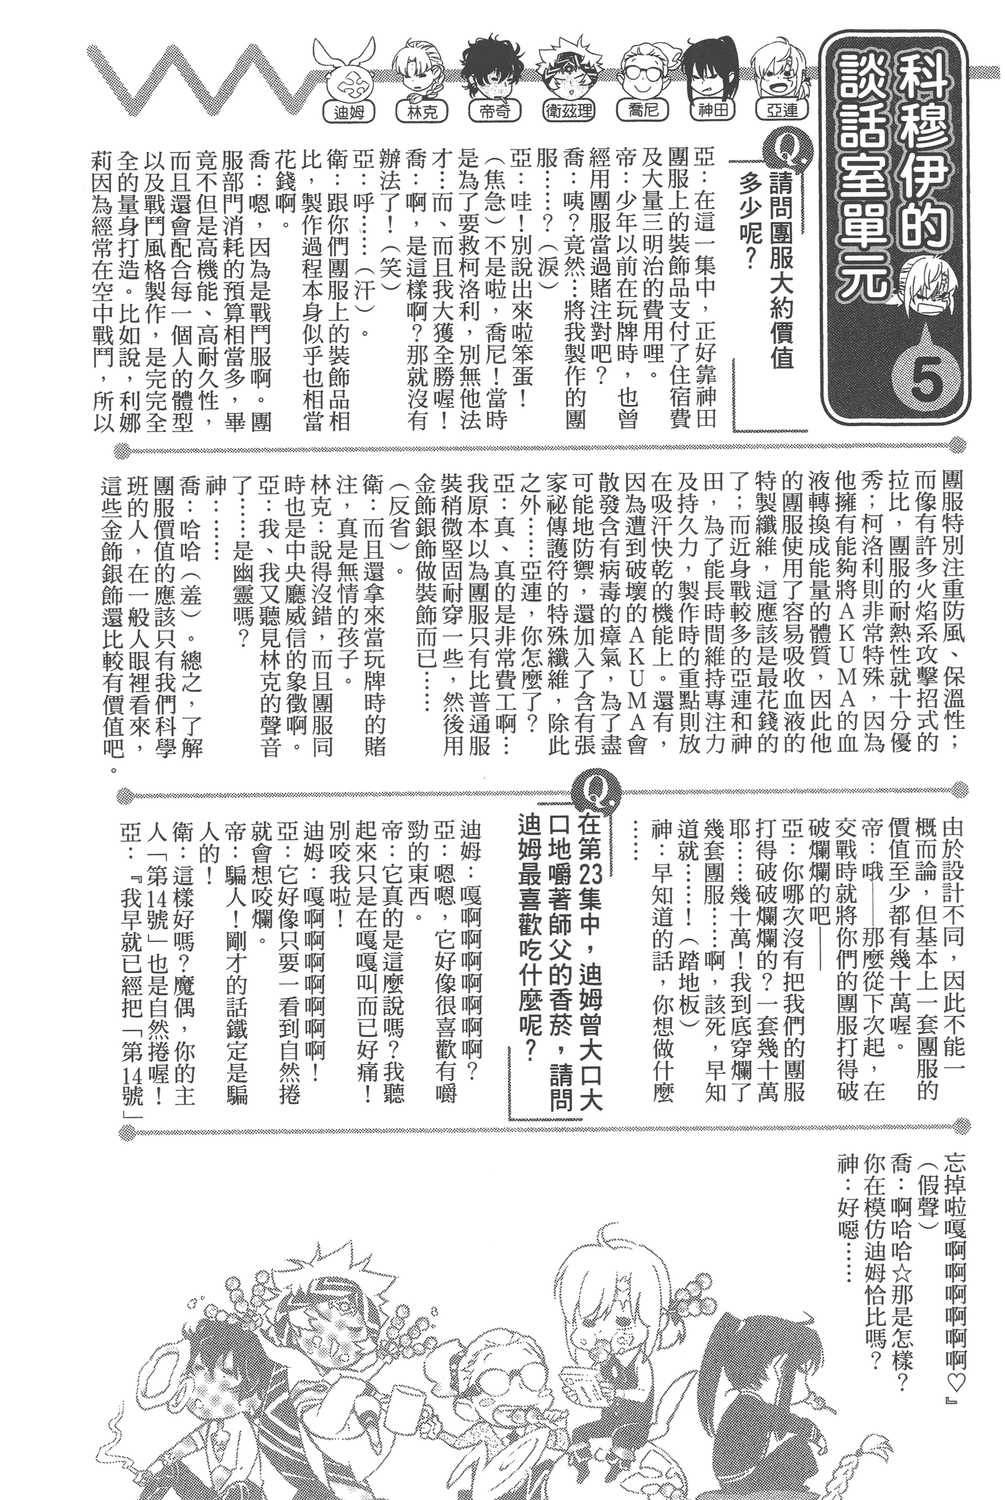 科穆伊的
談話室單元
5
亞連
神田
喬尼
衛茲理
帝奇
林克
迪姆
Q.
請問團服大約價值
多少呢？
亞：在這一集中，正好靠神田
團服上的裝飾品支付了住宿費
及大量三明治的費用哩。
帝：少年以前在玩牌時，也曾
經用團服當過賭注對吧？
喬：咦？竟然…將我製作的團
服……？（淚）
亞：哇！別說出來啦笨蛋！
（焦急）不是啦，喬尼！當時
是為了要救柯洛利，別無他法
才…而、而且我大獲全勝喔！
喬：啊，是這樣啊？那就沒有
辦法了！（笑）
亞：呼……（汗）。
衛：跟你們團服上的裝飾品相
比，製作過程本身似乎也相當
花錢啊。
喬：嗯，因為是戰鬥服啊。團
服部門消耗的預算相當多，畢
竟不但是高機能、高耐久性，
而且還會配合每一個人的體型
以及戰鬥風格製作，是完完全
全的量身打造。比如說，利娜
莉因為經常在空中戰鬥，所以
團服特別注重防風、保溫性；
而像有許多火焰系攻擊招式的
拉比，團服的耐熱性就十分優
秀；柯洛利則非常特殊，因為
他擁有能夠將AKUMA的血
液轉換成能量的體質，因此他
的團服使用了容易吸收血液的
特製纖維，這應該是最花錢的
了；而近身戰較多的亞連和神
田，為了能長時間維持專注力
及持久力，製作時的重點則放
在吸汗快乾的機能上。還有，
因為遭到破壞的AKUMA會
散發含有病毒的瘴氣，為了盡
可能地防禦，還加入了含有張
家祕傳護符的特殊纖維，除此
之外……亞連，你怎麼了？
亞：真、真的是非常費工啊…
我原本以為團服只有比普通服
裝稍微堅固耐穿一些，然後用
金飾銀飾做裝飾而已……
（反省）。
衛：而且還拿來當玩牌時的賭
注，真是無情的孩子。
林克：說得沒錯，而且團服同
時也是中央廳威信的象徵啊。
亞：我、我又聽見林克的聲音
了……是幽靈嗎？
神：……
喬：哈哈（羞）。總之，了解
團服價值的應該只有我們科學
班的人，在一般人眼裡看來，
這些金飾銀飾還比較有價值吧。
由於設計不同，因此不能一
概而論，但基本上一套團服的
價值至少都有幾十萬喔。
帝：哦——那麼從下次起，在
交戰時就將你們的團服打得破
破爛爛的吧——
亞：你哪次沒有把我們的團服
打得破破爛爛的？一套幾十萬
耶……幾十萬！我到底穿爛了
幾套團服……啊，該死，早知
道就……！（踏地板）
神：早知道的話，你想做什麼
……
Q.
在第23集中，迪姆曾大口大
口地嚼著師父的香菸，請問
迪姆最喜歡吃什麼呢？
迪姆：嘎啊啊啊啊啊啊？
亞：嗯嗯，它好像很喜歡有嚼
勁的東西。
帝：它真的是這麼說嗎？我聽
起來只是在嘎嘎叫而已好痛！
別咬我啦！
迪姆：嘎啊啊啊啊啊啊！
亞：它好像只要一看到自然捲
就會想咬爛。
帝：騙人！剛才的話鐵定是騙
人的！
衛：這樣好嗎？魔偶，你的主
人「第14號」也是自然捲喔！
亞：『我早就已經把「第14號」
忘掉啦嘎啊啊啊啊啊啊♡』
（假聲）
喬：啊哈哈☆那是怎樣？
你在模仿迪姆恰比嗎？
神：好噁……